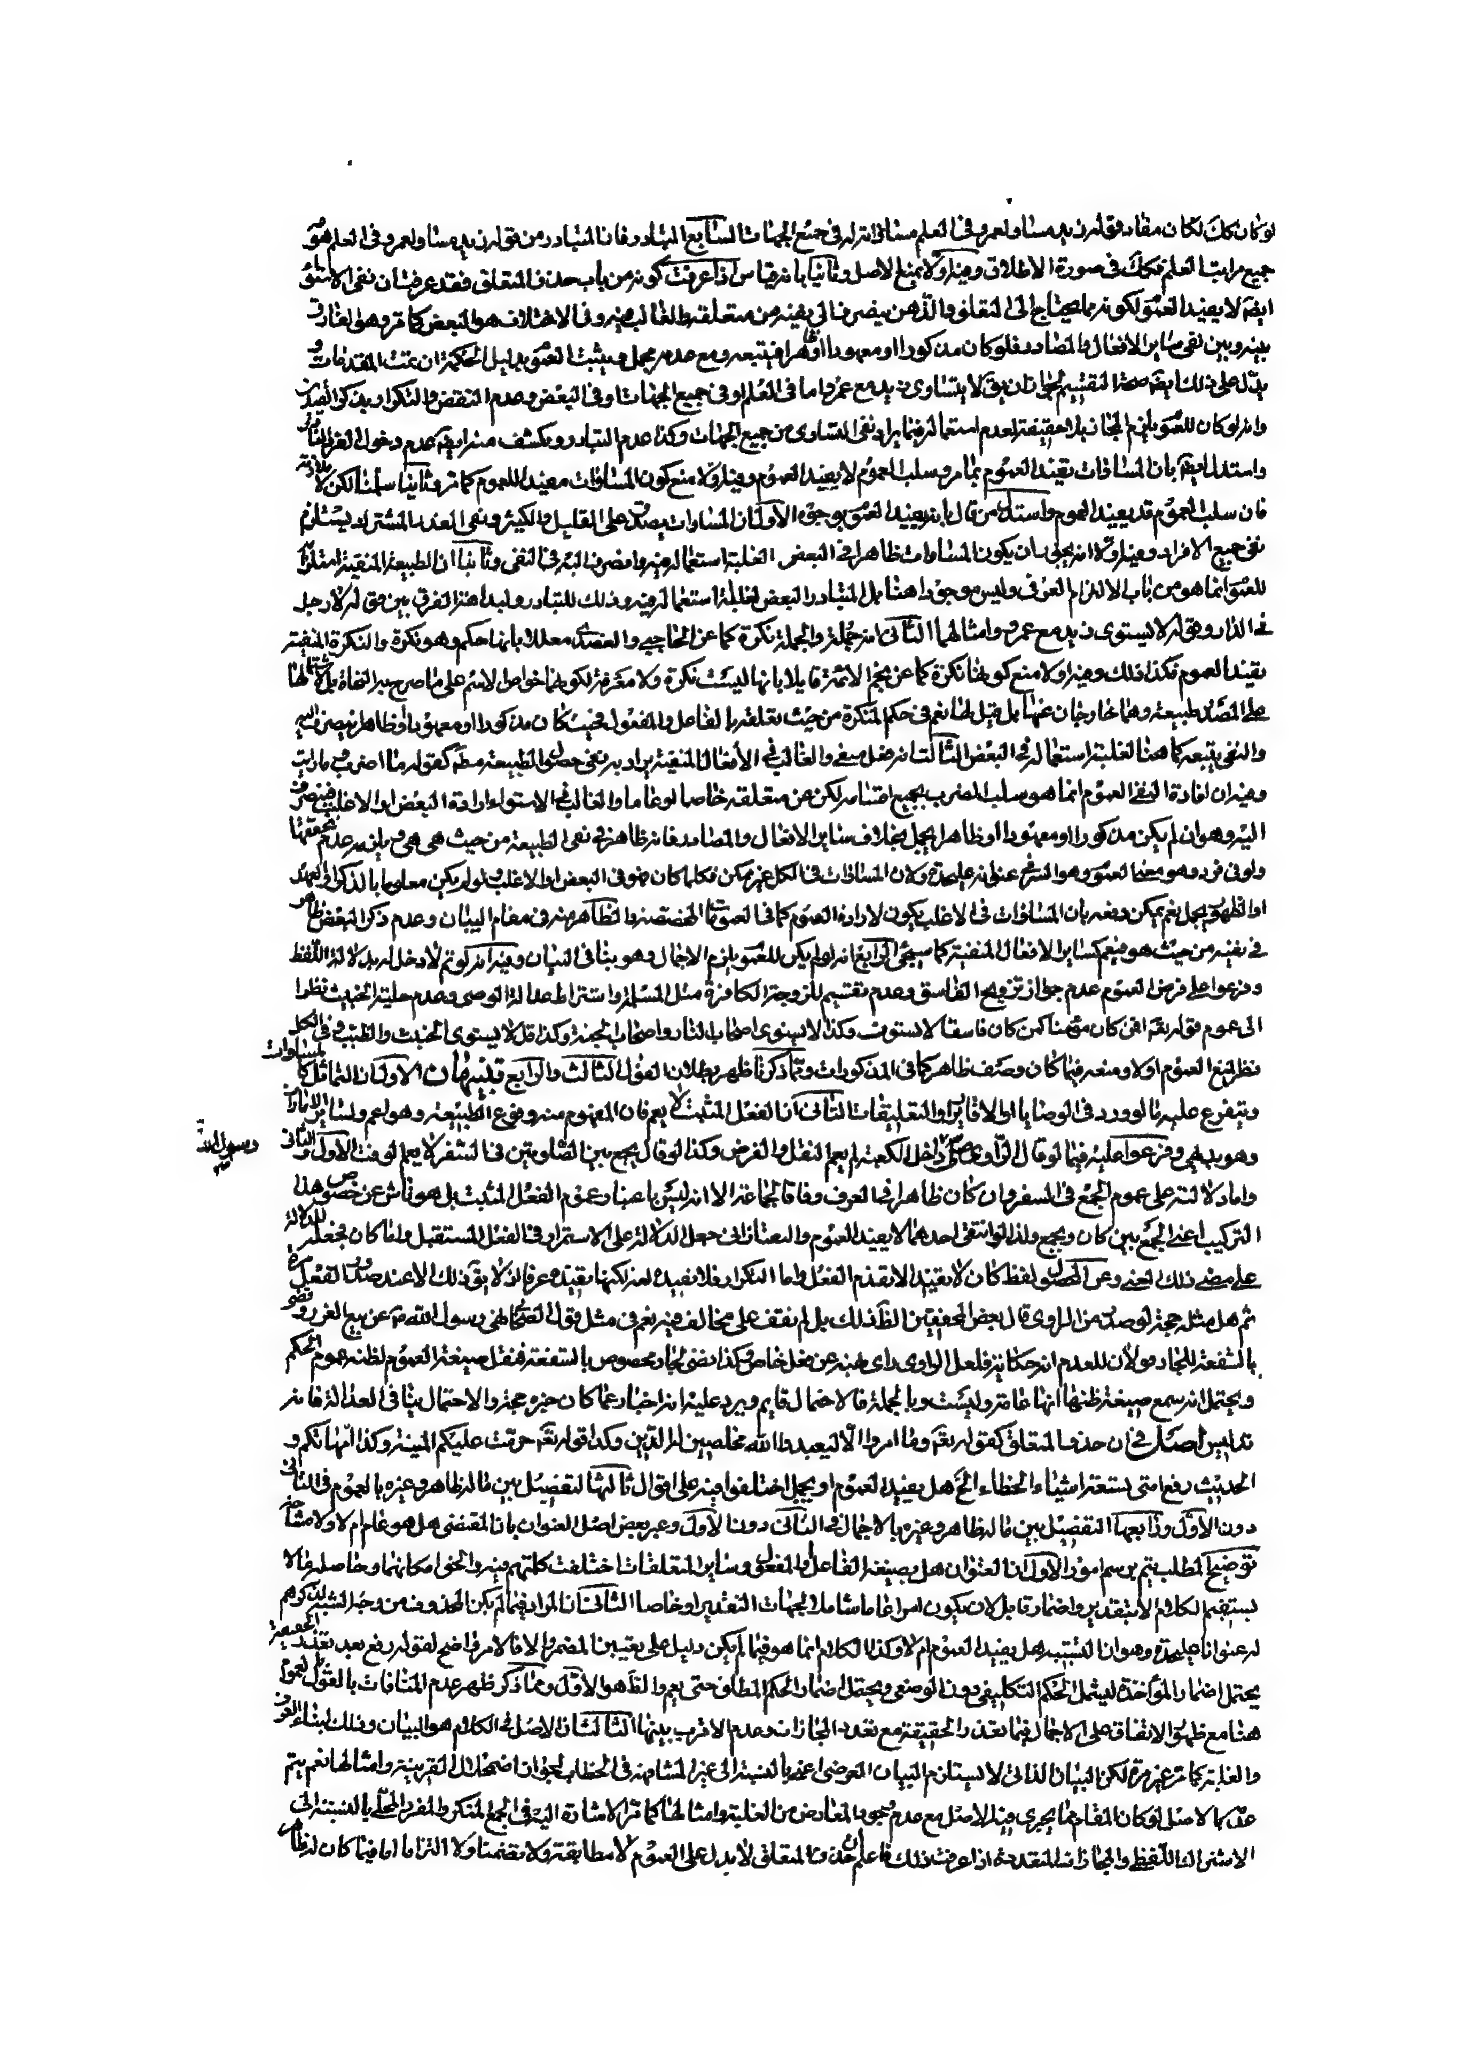 لو كان كك لكان مفاد قوله زيد مساو لعمرو في العلم مساواته له في جميع الجهات السابع التبادر فان المتبادر من قوله زيد مساو لعمرو في العلم هو
جميع مراتب العلم فكك في صورة الاطلاق وفيه اولا بمنع الاصل وثانيا بانه قياس اذا عرفت كونه من باب حذف المتعلق فقد عرفت ان نفى الاستواء
ايضا لا يفيد العموم لكونه مما يحتاج الى المتعلق والذهن ينصرف الى بعضه من متعلقه الغالب فيه وفي الاختلاف هو البعض كما مر وهو الفارق
بينه وبين نفى ساير الافعال والمصادر فلو كان مذكورا او معهودا او ظاهرا فيتبعه ومع عدمه مجمل ويثبت العموم بدليل الحكمة ان تمت المقدمات و
يدل على ذلك ايضا صحة التقسيم لجواز ان يق لا يتساوى زيد مع عمرو اما في العلم او في جميع الجهات او في البعض وعدم التنقض والتكرار
وانه لو كان للعموم يلزم المجاز بلا حقيقة لعدم استعماله فيما يراد نفى التساوى من جميع الجهات وكذا عدم التبادر ويكشف عنه ايضا عدم دخول الفرد
واستدل ايضا بان المساوات تفيد العموم بما مر وسلب العموم لا يفيد العموم وفيه اولا منع كون المساوات مفيدا للعموم كما مر وثانيا سلمنا لكن
فان سلب العموم قد يفيد العموم واستدل من قال بانه يفيد العموم بوجوه الاول ان المساوات يصدق على القليل والكثير ونفى القدر المشترك يستلزم
نفى جميع الافراد وفيه اولا انه يجدي بان يكون المساوات ظاهرا في البعض لغلبة استعماله فيه وانصرف اليه في النفى وثانيا ان الطبيعة المنفية
للعموم انما هو من باب الالتزام العرفى وليس موجودا هنا بل المتبادر البعض لغلبة استعماله فيه وذلك للتبادر ولبداهة الفرق بين قوله لا رجل
في الدار وقوله لا يستوى زيد مع عمرو وامثالهما الثانى انه جملة والجملة نكرة كما عن الحاجبى والعضدي معللا بانها حكم وهو نكرة والنكرة المنفية
تفيد العموم فكذا ذلك وفيه اولا منع كونها نكرة كما عن نجم الائمة قايلا بانها ليست نكرة ولا معرفة لكونهما خواص الاسم على ما صرح به النحاة بل
على المصدر طبيعة وهما خارجان عنها بل قيل لها نعم في حكم النكرة من حيث تعلقه بالفاعل والمفعول فحيث كان مذكورا او معهودا او ظاهرا ينصرف اليه
والنفى يتبعه كما هنا لغلبة استعماله في البعض الثالث انه فعل منفى والغالب في الافعال المنفية يراد به نفى حصول الطبيعة مط كقوله ما اضرب وما رايت
وفيه ان افادة النفى العموم انما هو سلب الضرب بجميع اقسامه لكن عن متعلقه خاصا او عاما والغالب في الاستواء ارادة البعض او الاغلب فينصرف
اليه وهو ان لم يكن مذكورا او معهودا او ظاهرا يجمل بخلاف ساير الافعال والمصادر فانه ظاهر في نفى الطبيعة من حيث هي هي ويلزمه عدم تحققها
ولو في فرد وهو معنى العموم
او الظهور مجمل نعم يمكن دفعه بان المساوات في الاغلب يكون لارادة العموم كما في العمومات المخصصة والظاهر منه في مقام البيان وعدم ذكر البعض
في نفيه من حيث هو فيعم كساير الافعال المنفية كما سيجئ الرابع انه لو لم يكن للعموم يلزم الاجمال وهو ينافى البيان وفيه انه لو تم لا دخل له بدلالة اللفظ
وفرعوا على فرض العموم عدم جواز تزويج الفاسق وعدم تقسيم للزوجة الكافرة مثل المسلمة واشتراط عدالة الوصى وعدم حلية الخبيث نظرا
الى عموم قوله تعالى افمن كان مؤمنا كمن كان فاسقا لا يستوون وكذا لا يستوى اصحاب النار واصحاب الجنة وكذا قل لا يستوى الخبيث والطيب وفي الكل
نظر لمنع العموم اولا ومنعه فيما كان وصف ظاهر كما في المذكورات ومما ذكرنا ظهر بطلان القول الثالث والرابع تنبيهان الاول ان التماثل كالمساوات
ويتفرع عليه ما لو ورد في الوصايا او الاقارير او التعليقات الثانى ان الفعل المثبت لا يعم فان المفهوم منه وقوع الطبيعة وهو اعم ولساير الامارات
وهو بديهي وفرعوا عليه فيما لو قال الراوى صلى داخل الكعبة لم يعم النفل والفرض وكذا لو قال يجمع بين الصلوتين في السفر لا يعم الوقت الاول والثانى
واما دلالته على عموم الجمع في السفر وان كان ظاهرا في العرف وفاقا لجماعة الا انه ليس باعتبار عموم الفعل المثبت بل هو ناش عن خصوص هذا
التركيب اعنى الجمع بين كان ويجمع ولذا لو انتفى احدهما لا يفيد العموم والبعض الى جعل الدلالة على الاستمرار في الفعل المستقبل واما كان فجعله للدلالة
على مضى ذلك المعنى وعن المحصول لفظ كان لا يفيد الا تقدم الفعل واما التكرار فلا يفيده لغة لكنها يفيده عرفا اذ لا يق ذلك الا عند صدور الفعل مرة
ثم هل مثله حجة لو صدر من الراوى قال بعض المحققين الظ ذلك بل لم نقف على مخالف فيه نعم في مثل قول الصحابي نهى رسول الله ص عن بيع الغرر وقضى
بالشفعة للجار قولان للعدم انه حكاية فلعل الراوى راى نهيه عن فعل خاص وكذا قضى لجار مخصوص بالشفعة فنقل صيغة العموم لظنه عموم الحكم
ويحتمل انه سمع صيغة ظنها انها عامة وليست وبالجملة فالاحتمال قايم ويرد عليه انه اخبار عما كان خبره حجة والاحتمال ينافى العدالة فانه
تدليس اصل في ان حذف المتعلق كقوله تعالى وما امروا الا ليعبدوا الله مخلصين له الدين وكذا قوله تعالى حرمت عليكم الميتة وكذا امهاتكم و
الحديث رفع عن امتى تسعة اشياء الخطاء الخ هل يفيد العموم او يجمل اختلفوا فيه على اقوال ثالثها التفصيل بين ما له ظاهر وغيره بالعموم في الثانى
دون الاول ورابعها التفصيل بين ما له ظاهر وغيره بالاجمال في الثانى دون الاول وعبر بعض اصل العنوان بان المقتضى هل هو عام ام لا
توضيح المطلب يتم برسم امور الاول ان العنوان هل بصيغة الفاعل او المفعول وساير المتعلقات اختلفت كلمتهم فيه والحق امكانهما وحاصله ما لا
يستقيم الكلام الا بتقدير واضمار قابل لان يكون امرا عاما شاملا لجهات التقدير او خاصا الثانى ان المراد فيما لم يكن المحذوف من وجه الشبه لذكرهم
له عنوانا عليحدة وهو ان التشبيه هل يفيد العموم ام لا وكذا الكلام انما هو فيما لم يكن دليل على تعيين المضمر والا فالامر واضح
يحتمل اضمار المؤاخذة ليشمل الحكم التكليفى دون الوضعى ويحتمل اضمار الحكم المطلق حتى يعم والظ هو الاول ومما ذكر ظهر عدم المنافات بالقول بالعموم
هنا مع ظهور الاتفاق على الاجمال فيما تعذر الحقيقة مع تعدد المجازات وعدم الاقرب بينها الثالث ان الاصل في الكلام هو البيان وذلك لبناء العرف
والغلبة كما مر غير مرة لكن البيان الذاتى لا يستلزم البيان العرضى اعنى بالنسبة الى غير المشافهة في الخطاب لجواز اضمحلال القرينة وامثالها نعم يتم
عدمها لاصل لو كان المقام مما يجرى فيه الاصل مع عدم وجود المعارض من الغلبة وامثالها كما مر الاشارة اليه في الجمع المنكر والمفرد المحلى بالنسبة الى
الاشتراك اللفظى والمجازات المتعددة اذا عرفت ذلك فاعلم ان حذف المتعلق لا يدل على العموم لا مطابقة ولا تضمنا ولا التزاما اما فيما كان له ظاهر